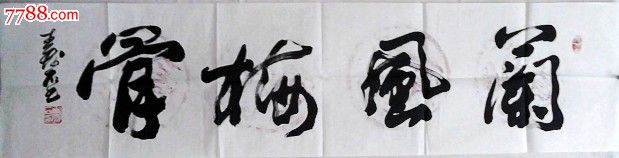 7788.com
蘭風梅骨